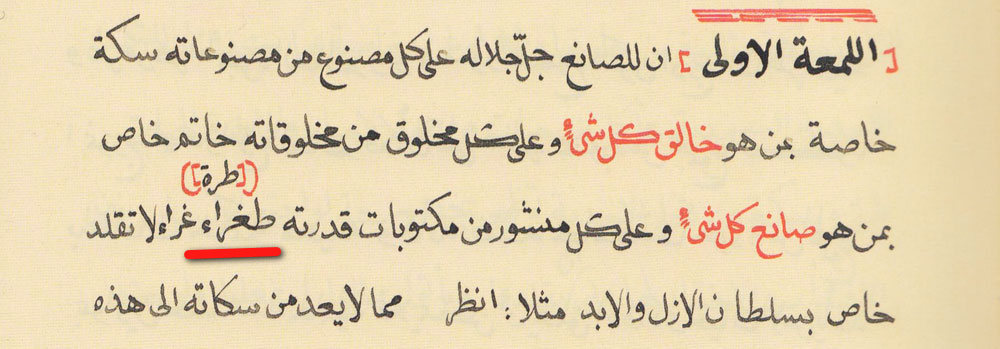 [اللمعة الاولى] ان للصانع جلّ جلاله على كل مصنوع من مصنوعاته سكة
خاصة بمن هو خالق كل شئٍ و على كل مخلوق من مخلوقاته خاتم خاص
([طرة])
بمن هو صانع كل شئٍ و على كل منشور من مكتوبات قدرته طغراء غراء لا تقلد
خاص بسلطان الازل والابد مثلا: انظر مما لا يعد من سكاته الى هذه